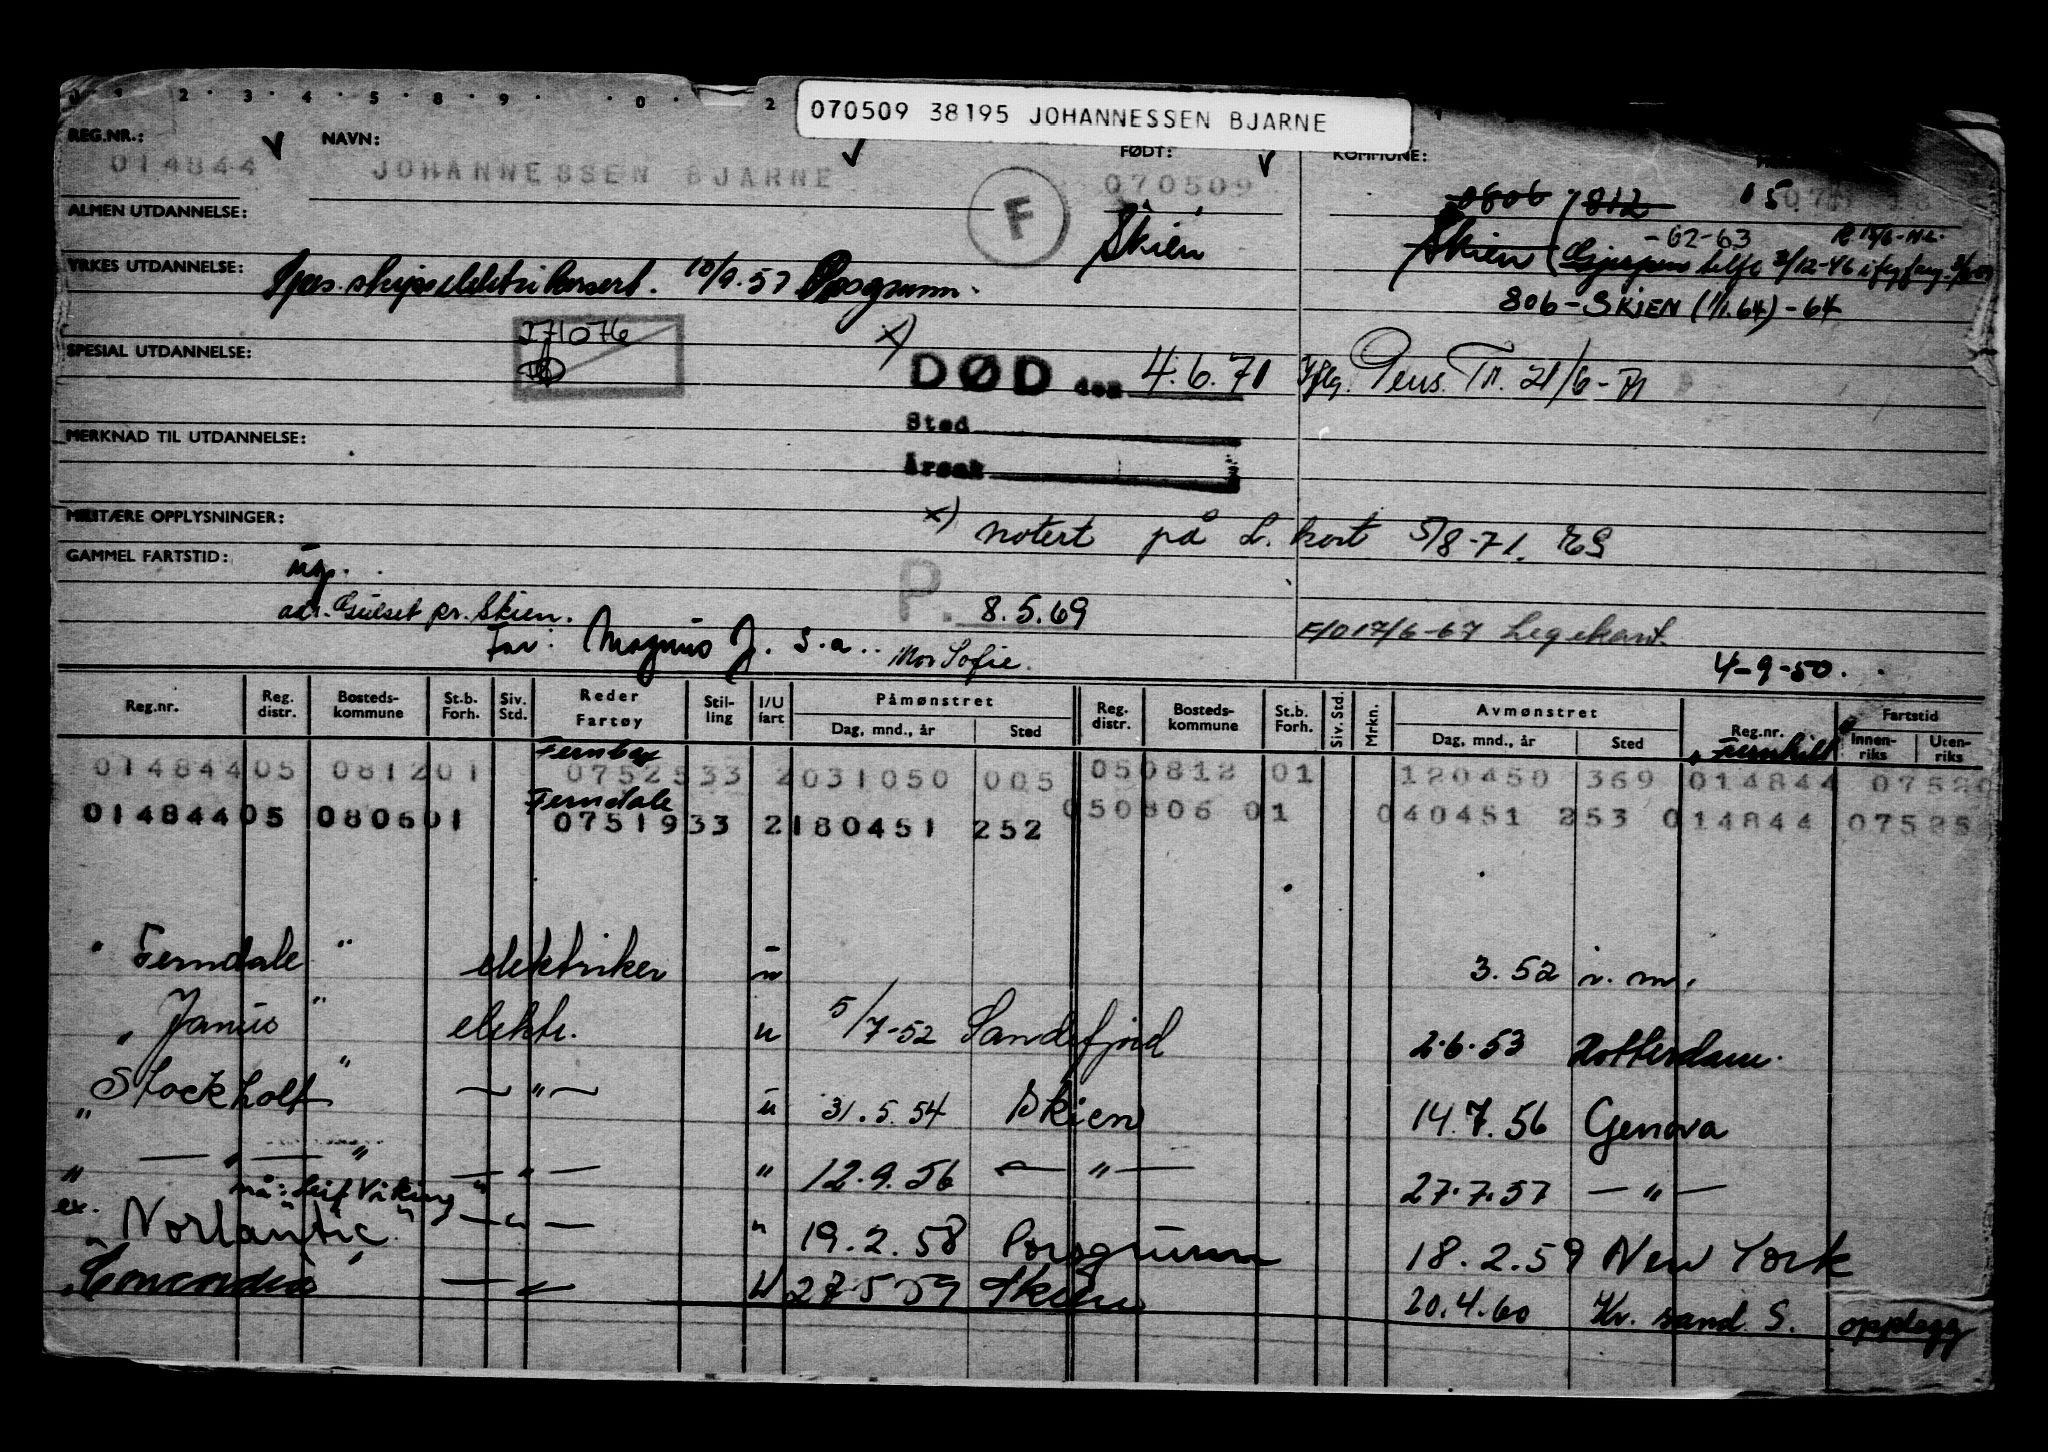 070509 38195 JOHANNESSEN BJARNE
REG.NR.: NAVN: FØDT: KOMMUNE:
014844 JOHANNESSEN BJARNE 070509
F
0806 812
ALMEN UTDANNELSE: Skien Skien - 62-63
Gjerpen
YRKES UTDANNELSE: skipselektrikersert. 10/9.57 Porsgrunn.
806 - SKIEN (1/1.64) - 64
271076
x)
SPESIAL UTDANNELSE:
DØD den 4.6.71 Iflg. Pens. Tr. 21/6-71
Sted
Årsak
MERKNAD TIL UTDANNELSE:
MILITÆRE OPPLYSNINGER:
x) notert på L. kort 5/8-71. ES
GAMMEL FARTSTID:
ug.
adr. Gulset pr. Skien. P. 8.5.69
Far: Magnus J. s.a.. Mor Sofie.
F/O 17/6-67 Legekort.
4-9-50.
Reg.nr. Reg. distr. Bosteds-kommune St.b. Forh. Siv. Std. Reder Fartøy Stil-ling I/U fart Påmønstret Reg. distr. Bosteds-kommune St.b. Forh. Siv. Std. Mrkn. Avmønstret Reg.nr. Fartstid
Dag, mnd., år Sted Dag, mnd., år Sted Innen-riks Uten-riks
Fernbay Fernhill
014844 05 0812 01 07525 33 2 031050 005 05 0812 01 120450 369 014844 0752
Ferndale
014844 05 0806 01 07519 33 2 180451 252 050806 01 040451 253 014844 07525
" Ferndale " elektriker u 3.52 n.m.
" Janus " elektr. u 5/7-52 Sandefjord 2.6.53 Rotterdam.
" Stockholt " — " — u 31.5.54 Skien 14.7.56 Genova
" — " — " — " — " 12.9.56 — " — 27.7.57 — " —
nå: Leif Viking"
ex. " Norlantic " — " — " 19.2.58 Porsgrunn 18.2.59 New York
" Concordia " — " — U 27.5.59 Skien 20.4.60 Kr. sand. S. opplegg